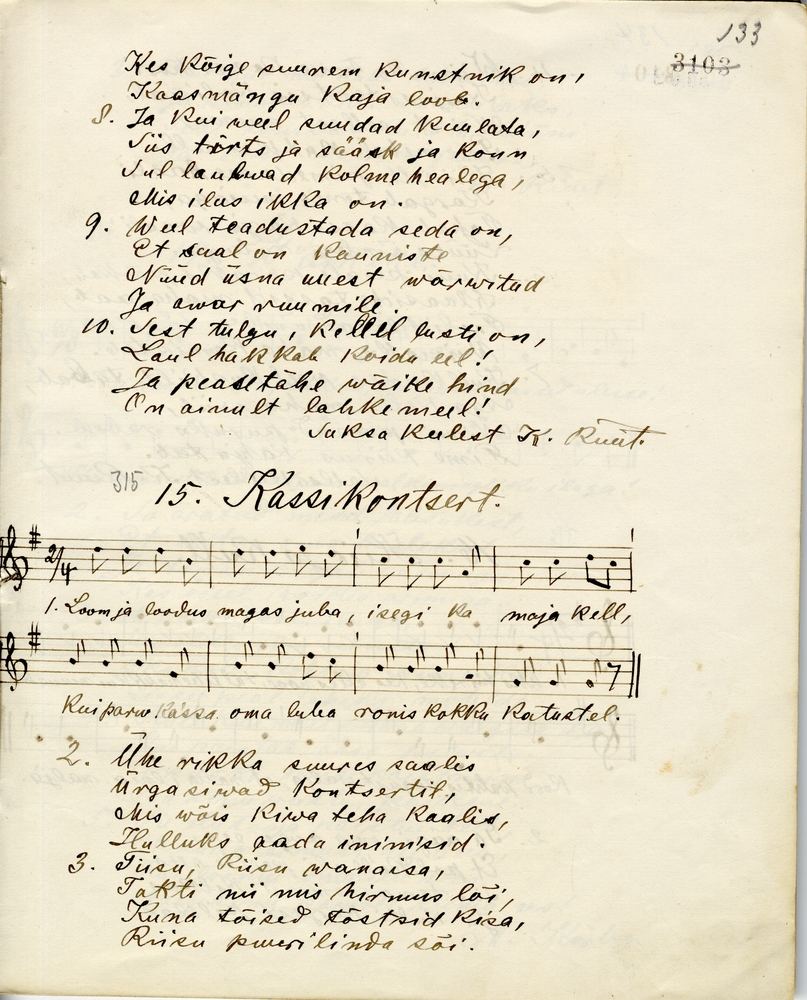 133
3103
Kes kõige suurem kunstnik on,
Kaasmängu kaja loob.
8. Ja kui weel suudad kuulata,
Siis tirts ja sääsk ja konn
Sul laulwad kolme healega,
Mis ilus ikka on.
9. Weel teadustada seda on,
Et saal on kauniste
Nüüd üsna uuest wärwitud
Ja awar ruumile.
10. Sest tulgu, kellel lusti on,
Laul hakkab koidu eel!
Ja peasetähe wäike hind
On ainult lahke meel!
Saksa keelest K. Ruut.
315
15. Kassikontsert.
2/4
1. Loom ja loodus magas juba, isegi ka maja kell,
Kui parw kassa oma luba ronis kokku katustel.
2. Ühe rikka suures saalis
Ürgasiwad kontsertil,
Mis wõis kiwa teha kaalis,
Hulluks aada inimisid.
3. Tiisu, Riisu wanaisa,
Takti nii mis hirmus lõi,
Kuna tõised tõstsid kisa,
Riisu puurilinda sõi.